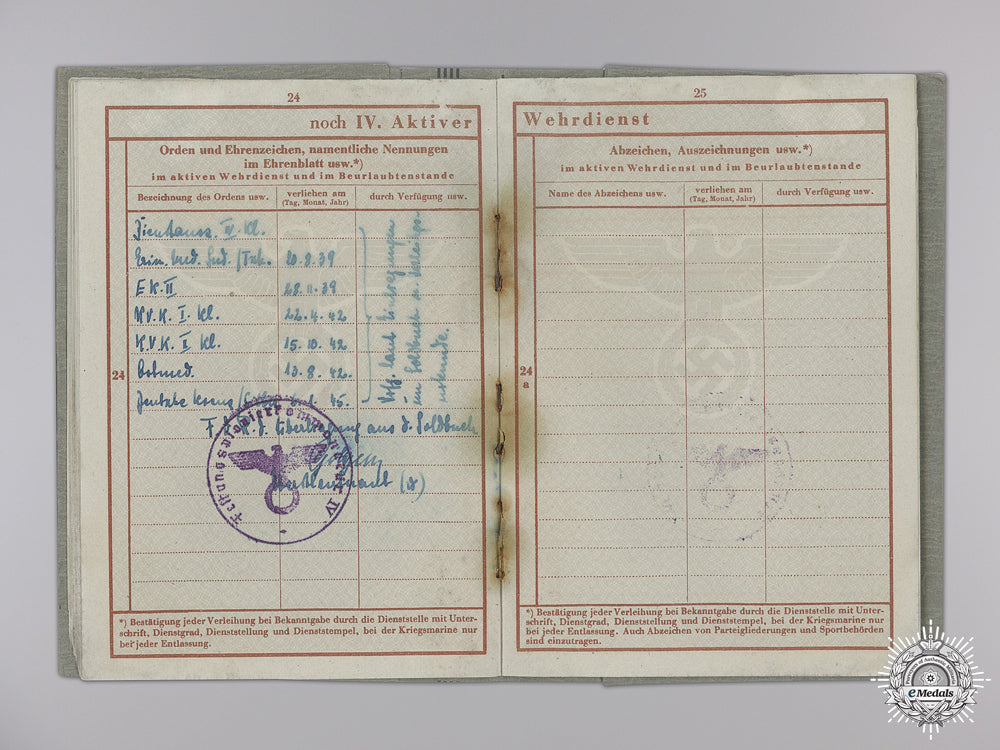 24
noch IV. Aktiver
Orden und Ehrenzeichen, namentliche Nennungen
im Ehrenblatt usw.*)
im aktiven Wehrdienst und im Beurlaubtenstande
Bezeichnung des Ordens usw.
verliehen am
(Tag, Monat, Jahr)
durch Verfügung usw.
24
IV. Kl.
Erin. Med.
20.8.39
E K. II
28.11.39
K.V.K. I. Kl.
22.4.42
K.V.K. II Kl.
15.10.42
Ostmed.
13.8.42.
45.
Vfg. laut Eintragungen
im Soldbuch u. Verleihungs
urkunde.
F. d. R. d. Übertragung aus d. Soldbuch
Festungspionierkommandeur IV
*) Bestätigung jeder Verleihung bei Bekanntgabe durch die Dienststelle mit Unter-
schrift, Dienstgrad, Dienststellung und Dienststempel, bei der Kriegsmarine nur
bei jeder Entlassung.
25
Wehrdienst
Abzeichen, Auszeichnungen usw.*)
im aktiven Wehrdienst und im Beurlaubtenstande
Name des Abzeichens usw.
verliehen am
(Tag, Monat, Jahr)
durch Verfügung usw.
24
a
*) Bestätigung jeder Verleihung bei Bekanntgabe durch die Dienststelle mit Unter-
schrift, Dienstgrad, Dienststellung und Dienststempel, bei der Kriegsmarine nur
bei jeder Entlassung. Auch Abzeichen von Parteigliederungen und Sportbehörden
sind einzutragen.
eMedals